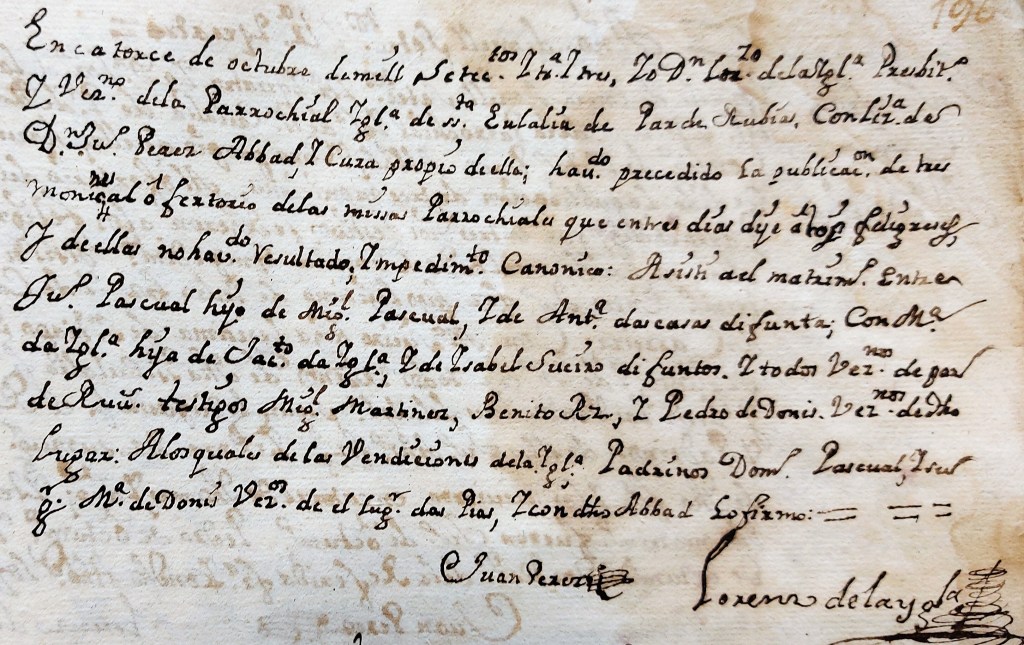 196
En catorce de octubre de mill Setec.tos Y tr.ª Y tres, Yo D.n Lor.zo de la Ygl.ª Presbit.º
Y Vez.no de la Parrochial Ygl.ª de S.ta Eulalia de Par de Rubias, Con liz.ª de
D.n Ju.º Perez Abbad, Y Cura propio de ella; hav.do precedido la publicac.on de tres
moniz.nes al ofertorio de las missas Parrochiales que en tres dias dije a los feligreses,
Y de ellas no hav.do Resultado, Ympedim.to Canonico: Asisti a el matrim.º Entre
Ju.º Pascual hijo de Mig.l Pascual, Y de Ant.ª das casas difunta; Con M.ª
da Ygl.ª hija de Jac.to da Ygl.ª, Y de Ysabel Sueiro difuntos. Y todos Vez.nos de par
de Ruu.s testigos Mig.l Martinez, Benito Rz, Y Pedro de Donis. Vez.nos de dho
Lugar: A los quales de las Vendiciones de la Ygl.ª Padrinos Dom.º Pascual, Y su
M.ª de Donis Vez.os de el lug.r das Pias, Y con dho Abbad Lo firmo: = = =
Juan Perez
Lorenzo de la ygla